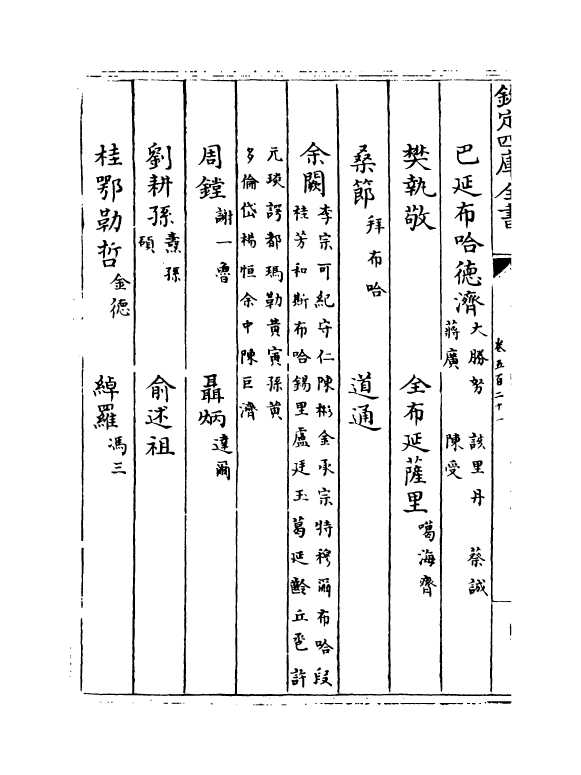 欽定四庫全書
卷五百二十一
巴延布哈德濟 大勝努 該里丹 蔡誠
蔣廣 陳受
樊執敬 全布延薩里 噶海齊
桑節 拜布哈 道通
余闕 李宗可紀守仁陳彬金承宗特穆爾布哈段
桂芳和斯布哈錫里盧廷玉葛延齡丘𢀖許
元琰諤都瑪勒黄寅孫黄
多倫岱楊恒余中陳巨濟
周鏜 謝一魯 聶炳 達爾
劉耕孫 燾孫 俞述祖
碩
桂鄂勒哲 金德 綽羅 馮三